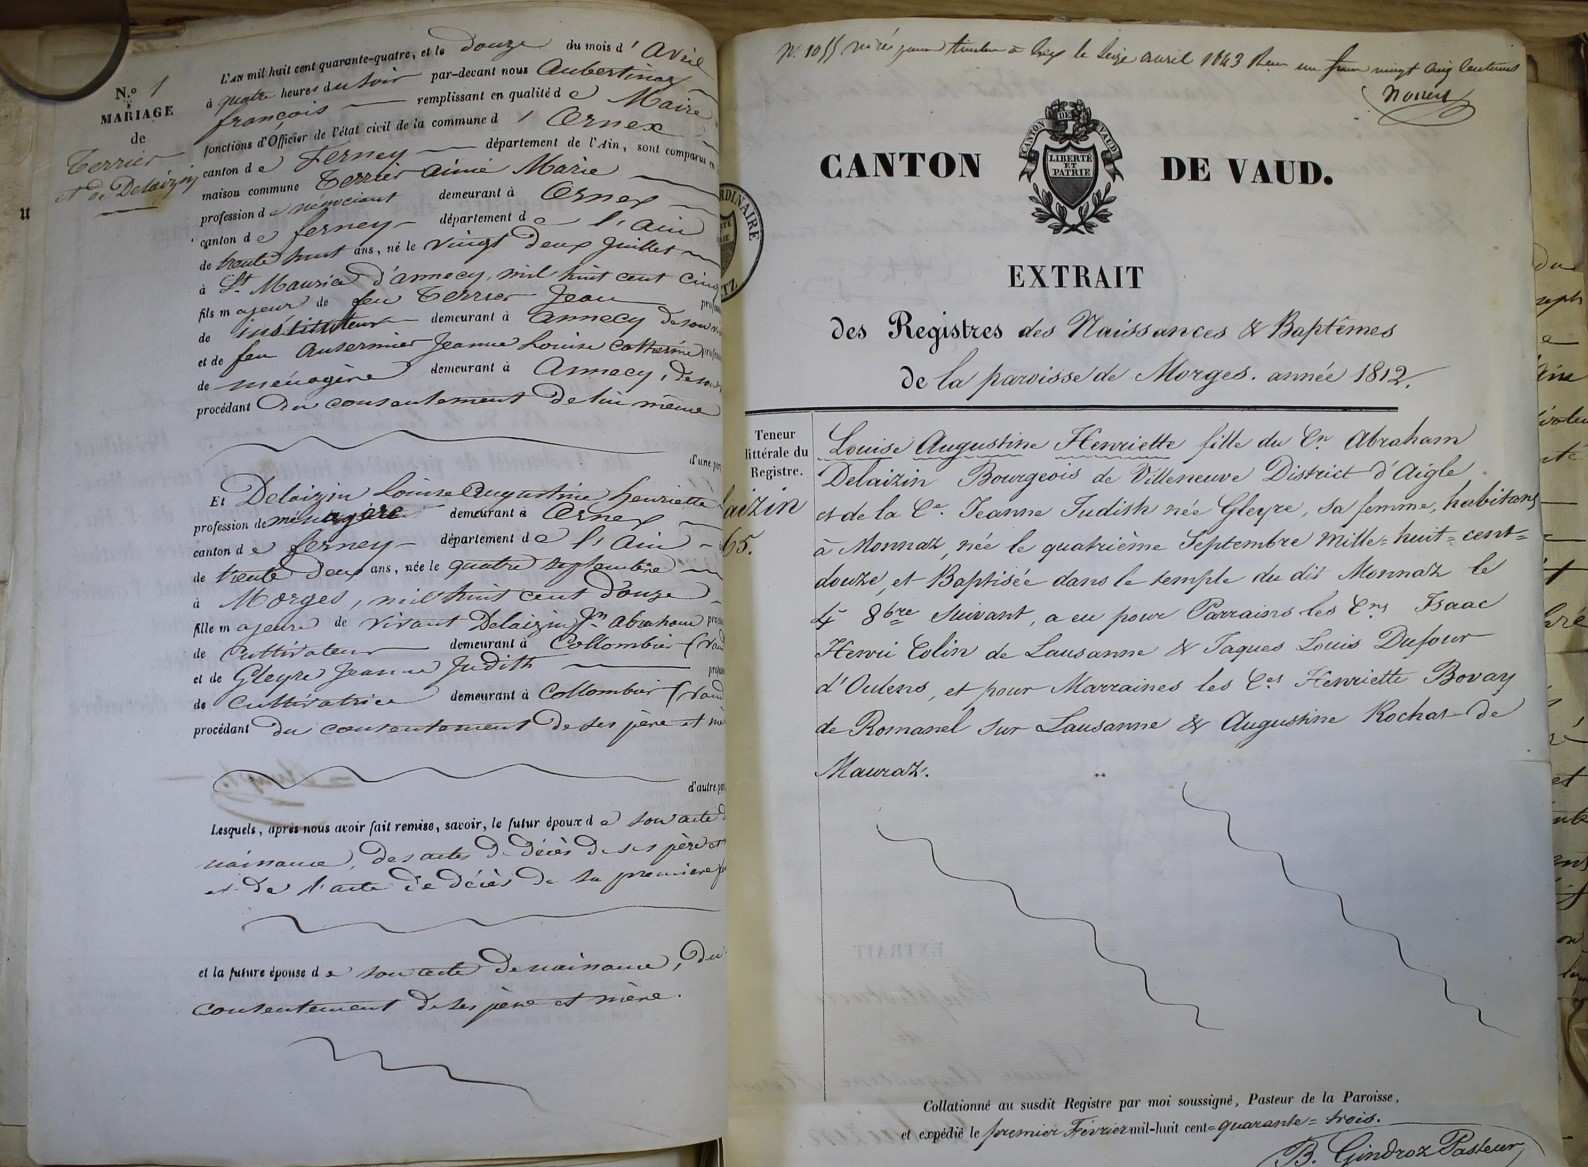 N.º 1
MARIAGE
de
Terrier
et de Delaizin
L'AN mil huit cent quarante-quatre, et le douze du mois d'Avril
à quatre heures du soir par-devant nous Aubertinaz
françois remplissant en qualité de Maire
fonctions d'Officier de l'état civil de la commune d'Ornex
canton de Ferney département de l'Ain, sont comparus en
maison commune Terrier aimé Marie
profession de négociant demeurant à Ornex
canton de ferney département de l'Ain
de trente huit ans, né le vingt deux Juillet
à St. Maurice d'annecy, mil huit cent cinq
fils majeur de feu Terrier Jean
de instituteur demeurant à annecy de son
et de feu Jeanne Louise Catherine
de ménagère demeurant à Annecy, de son
procédant du consentement de lui même
d'une part
Et Delaizin Louise Augustine henriette
profession de ménagère demeurant à Ornex
canton de ferney département de l'Ain
de trente deux ans, née le quatre septembre
à Morges, mil huit cent douze
fille majeure de vivant Delaizin Jn Abraham
de Cultivateur demeurant à Collombier (vaud
et de Gleyre Jeanne Judith
de Cultivatrice demeurant à Collombier (vaud
procédant du consentement de ses père et mè
d'autre par
Lesquels, après nous avoir fait remise, savoir, le futur époux de son acte d
naissance, des actes de décès de ses père et
et de l'acte de décès de sa première
et la future épouse de son acte de naissance, du
consentement de ses père et mère.
N.º 1055 le seize avril 1843 un franc vingt cinq centimes
CANTON DE VAUD
LIBERTÉ
ET
PATRIE
CANTON DE VAUD.
EXTRAIT
des Registres des Naissances & Baptêmes
de la paroisse de Morges. année 1812.
Teneur
littérale du
Registre.
aizin
65.
Louise Augustine Henriette fille du Cn. Abraham
Delaizin Bourgeois de Villeneuve District d'Aigle
et de la Ce. Jeanne Judith née Gleyre, sa femme, habitans
à Monnaz, née le quatrième Septembre mille-huit-cent-
douze, et Baptisée dans le temple du dit Monnaz le
4e 8bre suivant, a eu pour Parrains les Cns Isaac
Henri Colin de Lausanne & Jaques Louis Dufour
d'Oulens, et pour Marraines les Ces Henriette Bovay
de Romanel sur Lausanne & Augustine Rochat de
Mauraz.
Collationné au susdit Registre par moi soussigné, Pasteur de la Paroisse,
et expédié le premier Février mil-huit cent-quarante-trois.
B. Gindroz Pasteur